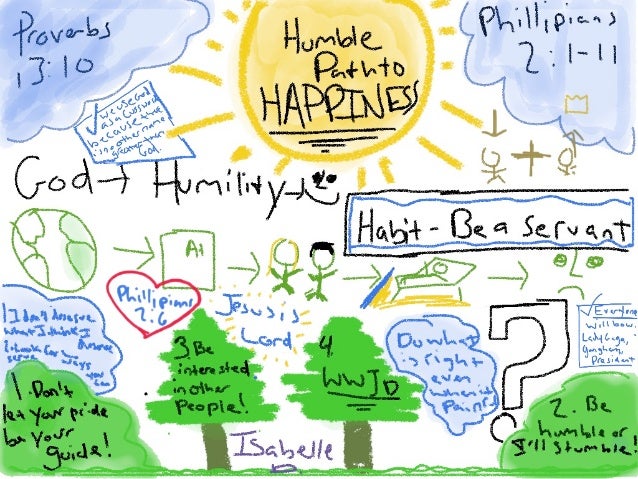 Proverbs
13:10
Humble
Path to
HAPPINESS
Phillipians
2:1-11
we use God
as a cussword
because there
is no other name
greater than
God.
God → Humility →
Habit - Be a servant
A+
Phillipians
2:6
Jesus is
Lord
I don't deserve
what I think I
deserve
I look for ways
serve you
can
3. Be
interested
in other
People!
4.
WWJD
Do what
is right
even
when it
Pains
?
Everyone
will bow.
Lady Gaga,
President
1. Don't
let your pride
be your
guide!
Isabelle
2. Be
humble or
I'll stumble!